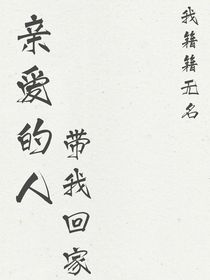 我籍籍无名
亲爱的人
带我回家